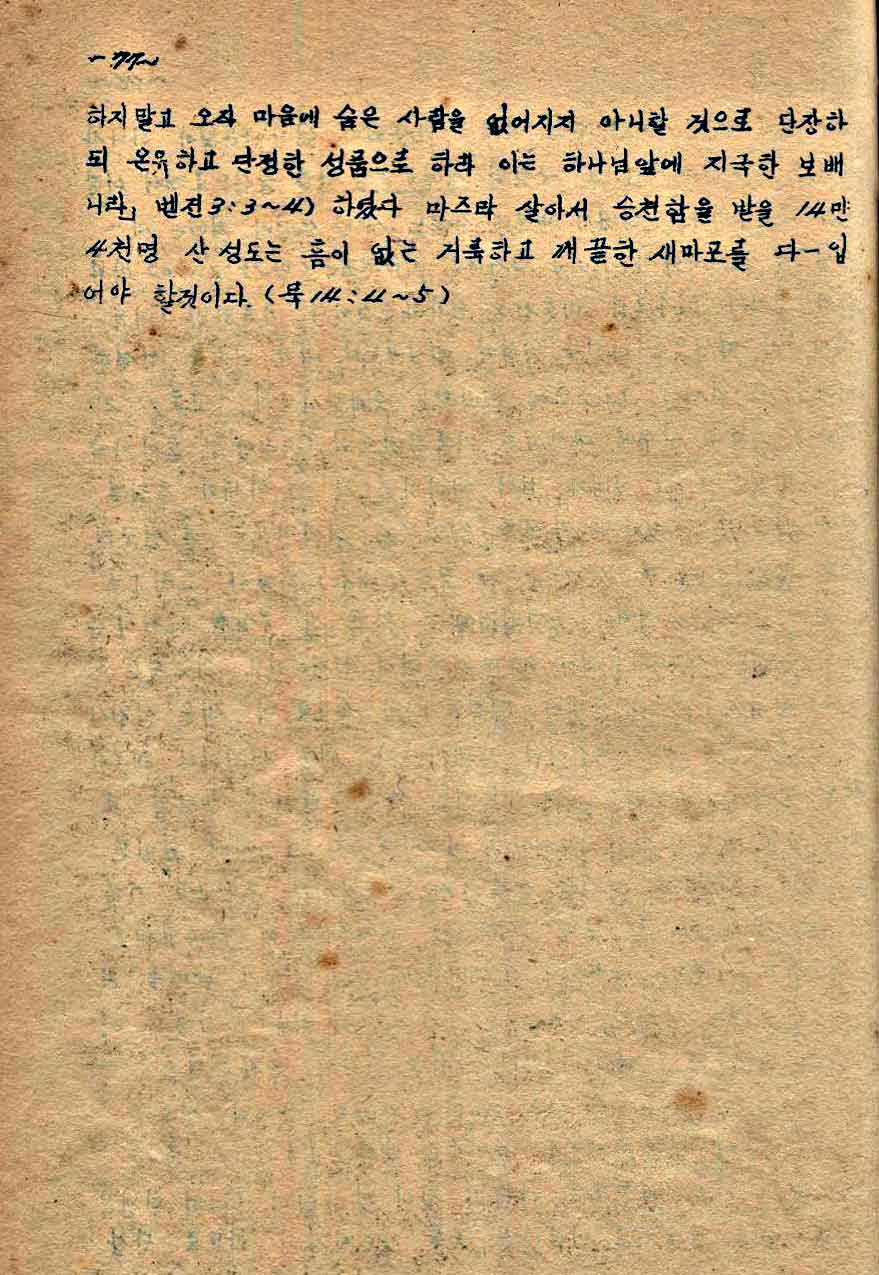 - 77 -
하지말고 오직 마음에 숨은 사람을 없어지지 아니할 것으로 단장하
되 온유하고 단정한 성품으로 하라 이는 하나님앞에 지극한 보배
니라」 벧전3:3~4) 하였다 마즈막 살아서 승천함을 받을 14만
4천명 산 성도는 흠이 없는 거룩하고 깨끝한 새마포를 다-입
어야 할것이다. (묵14:4~5)